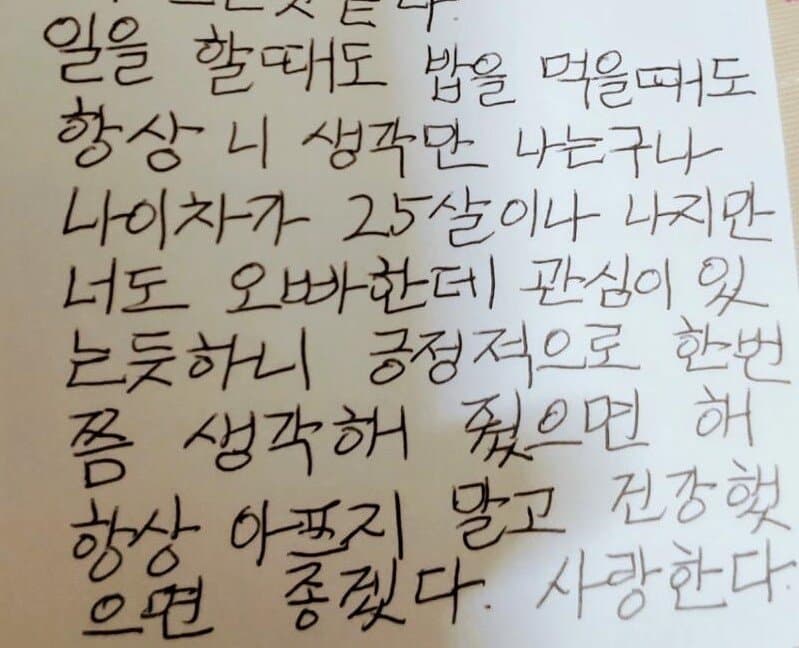 일을 할때도 밥을 먹을때도
항상 니 생각만 나는구나
나이차가 25살이나 나지만
너도 오빠한데 관심이 있
는듯하니 긍정적으로 한번
쯤 생각해 줬으면 해
항상 아프지 말고 건강했
으면 종겠다. 사랑한다.